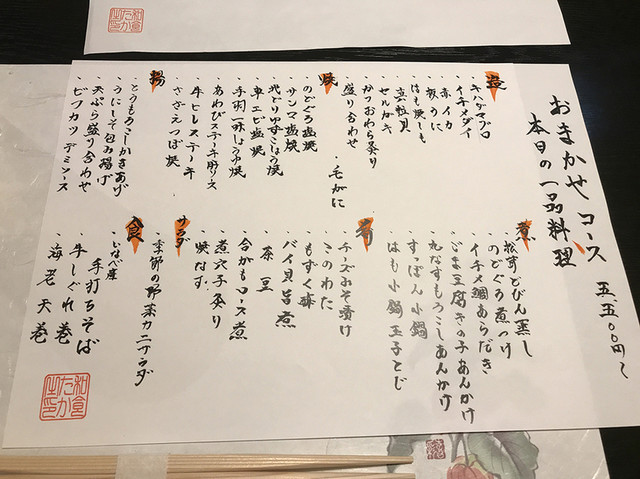 おまかせコース 五、五〇〇円〜
本日の一品料理
造
・キハダマグロ
・イチメダイ
・赤イカ
・板うに
・はも焼しも
・真粒貝
・セルガキ
・かつおわら炙り
・盛り合わせ
・毛がに
焼
・のどぐろ塩焼
・サンマ塩焼
・地どりゆずこしょう焼
・車エビ塩焼
・手羽一味しょうゆ焼
・あわびステーキ肝ソース
・牛ヒレステーキ
・さざえつぼ焼
揚
・とうもろこしかきあげ
・うにしそ包み揚げ
・天ぷら盛り合わせ
・ビフカツデミソース
煮
・松茸どびん蒸し
・のどぐろ煮つけ
・イチメ鯛あらだき
・ごま豆腐きの子あんかけ
・丸なすもろこしあんかけ
・すっぽん小鍋
・はも小鍋玉子とじ
肴
・チーズみそ漬け
・このわた
・もずく酢
・バイ貝旨煮
・茶豆
・合かもロース煮
・煮穴子炙り
・焼なす
サラダ
・季節の野菜カニサラダ
食
・いなべ産
手打ちそば
・牛しぐれ巻
・海老天巻
和食
たか